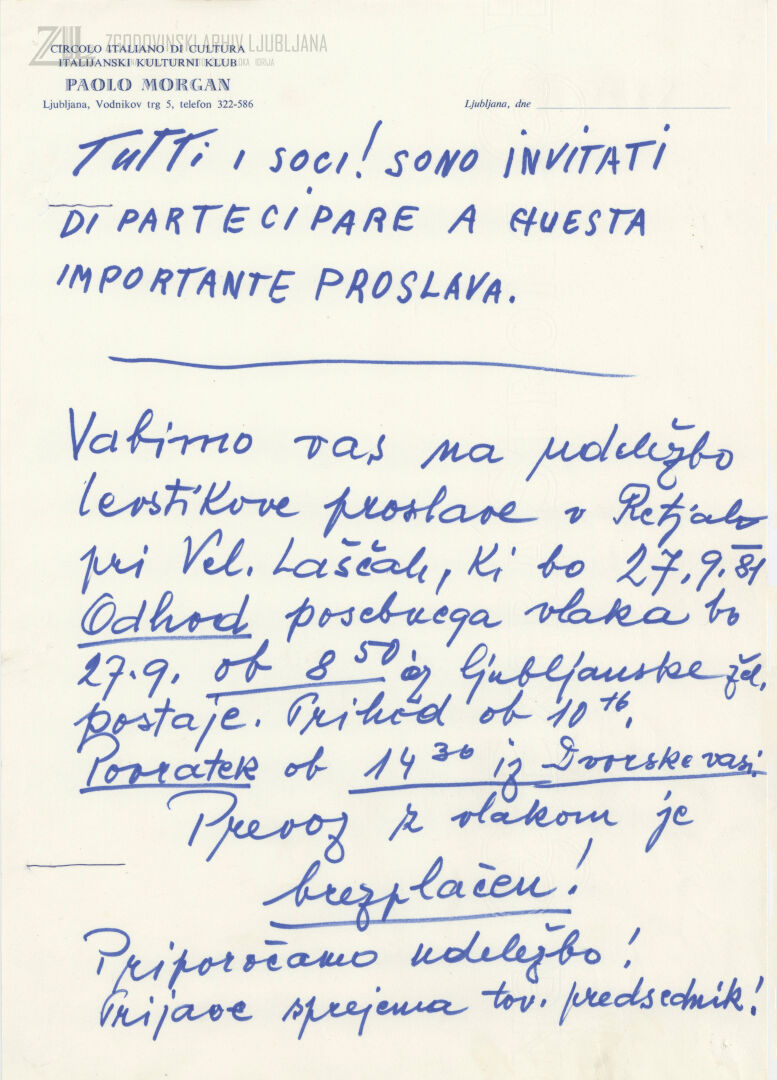 ZGODOVINSKI ARHIV LJUBLJANA
CIRCOLO ITALIANO DI CULTURA
ITALIJANSKI KULTURNI KLUB
PAOLO MORGAN
Ljubljana, Vodnikov trg 5, telefon 322-586
Ljubljana, dne
TUTTI I SOCI! SONO INVITATI
DI PARTECIPARE A QUESTA
IMPORTANTE PROSLAVA.
Vabimo vas na udeležbo
levstikove proslave v Retjah
pri Vel. Laščah, ki bo 27.9.81
Odhod posebnega vlaka bo
27.9. ob 8 50 iz ljubljanske žel.
postaje. Prihod ob 10 16.
Povratek ob 14 30 iz Dvorske vasi.
Prevoz z vlakom je
brezplačen!
Priporočamo udeležbo!
Prijave sprejema tov. predsednik!